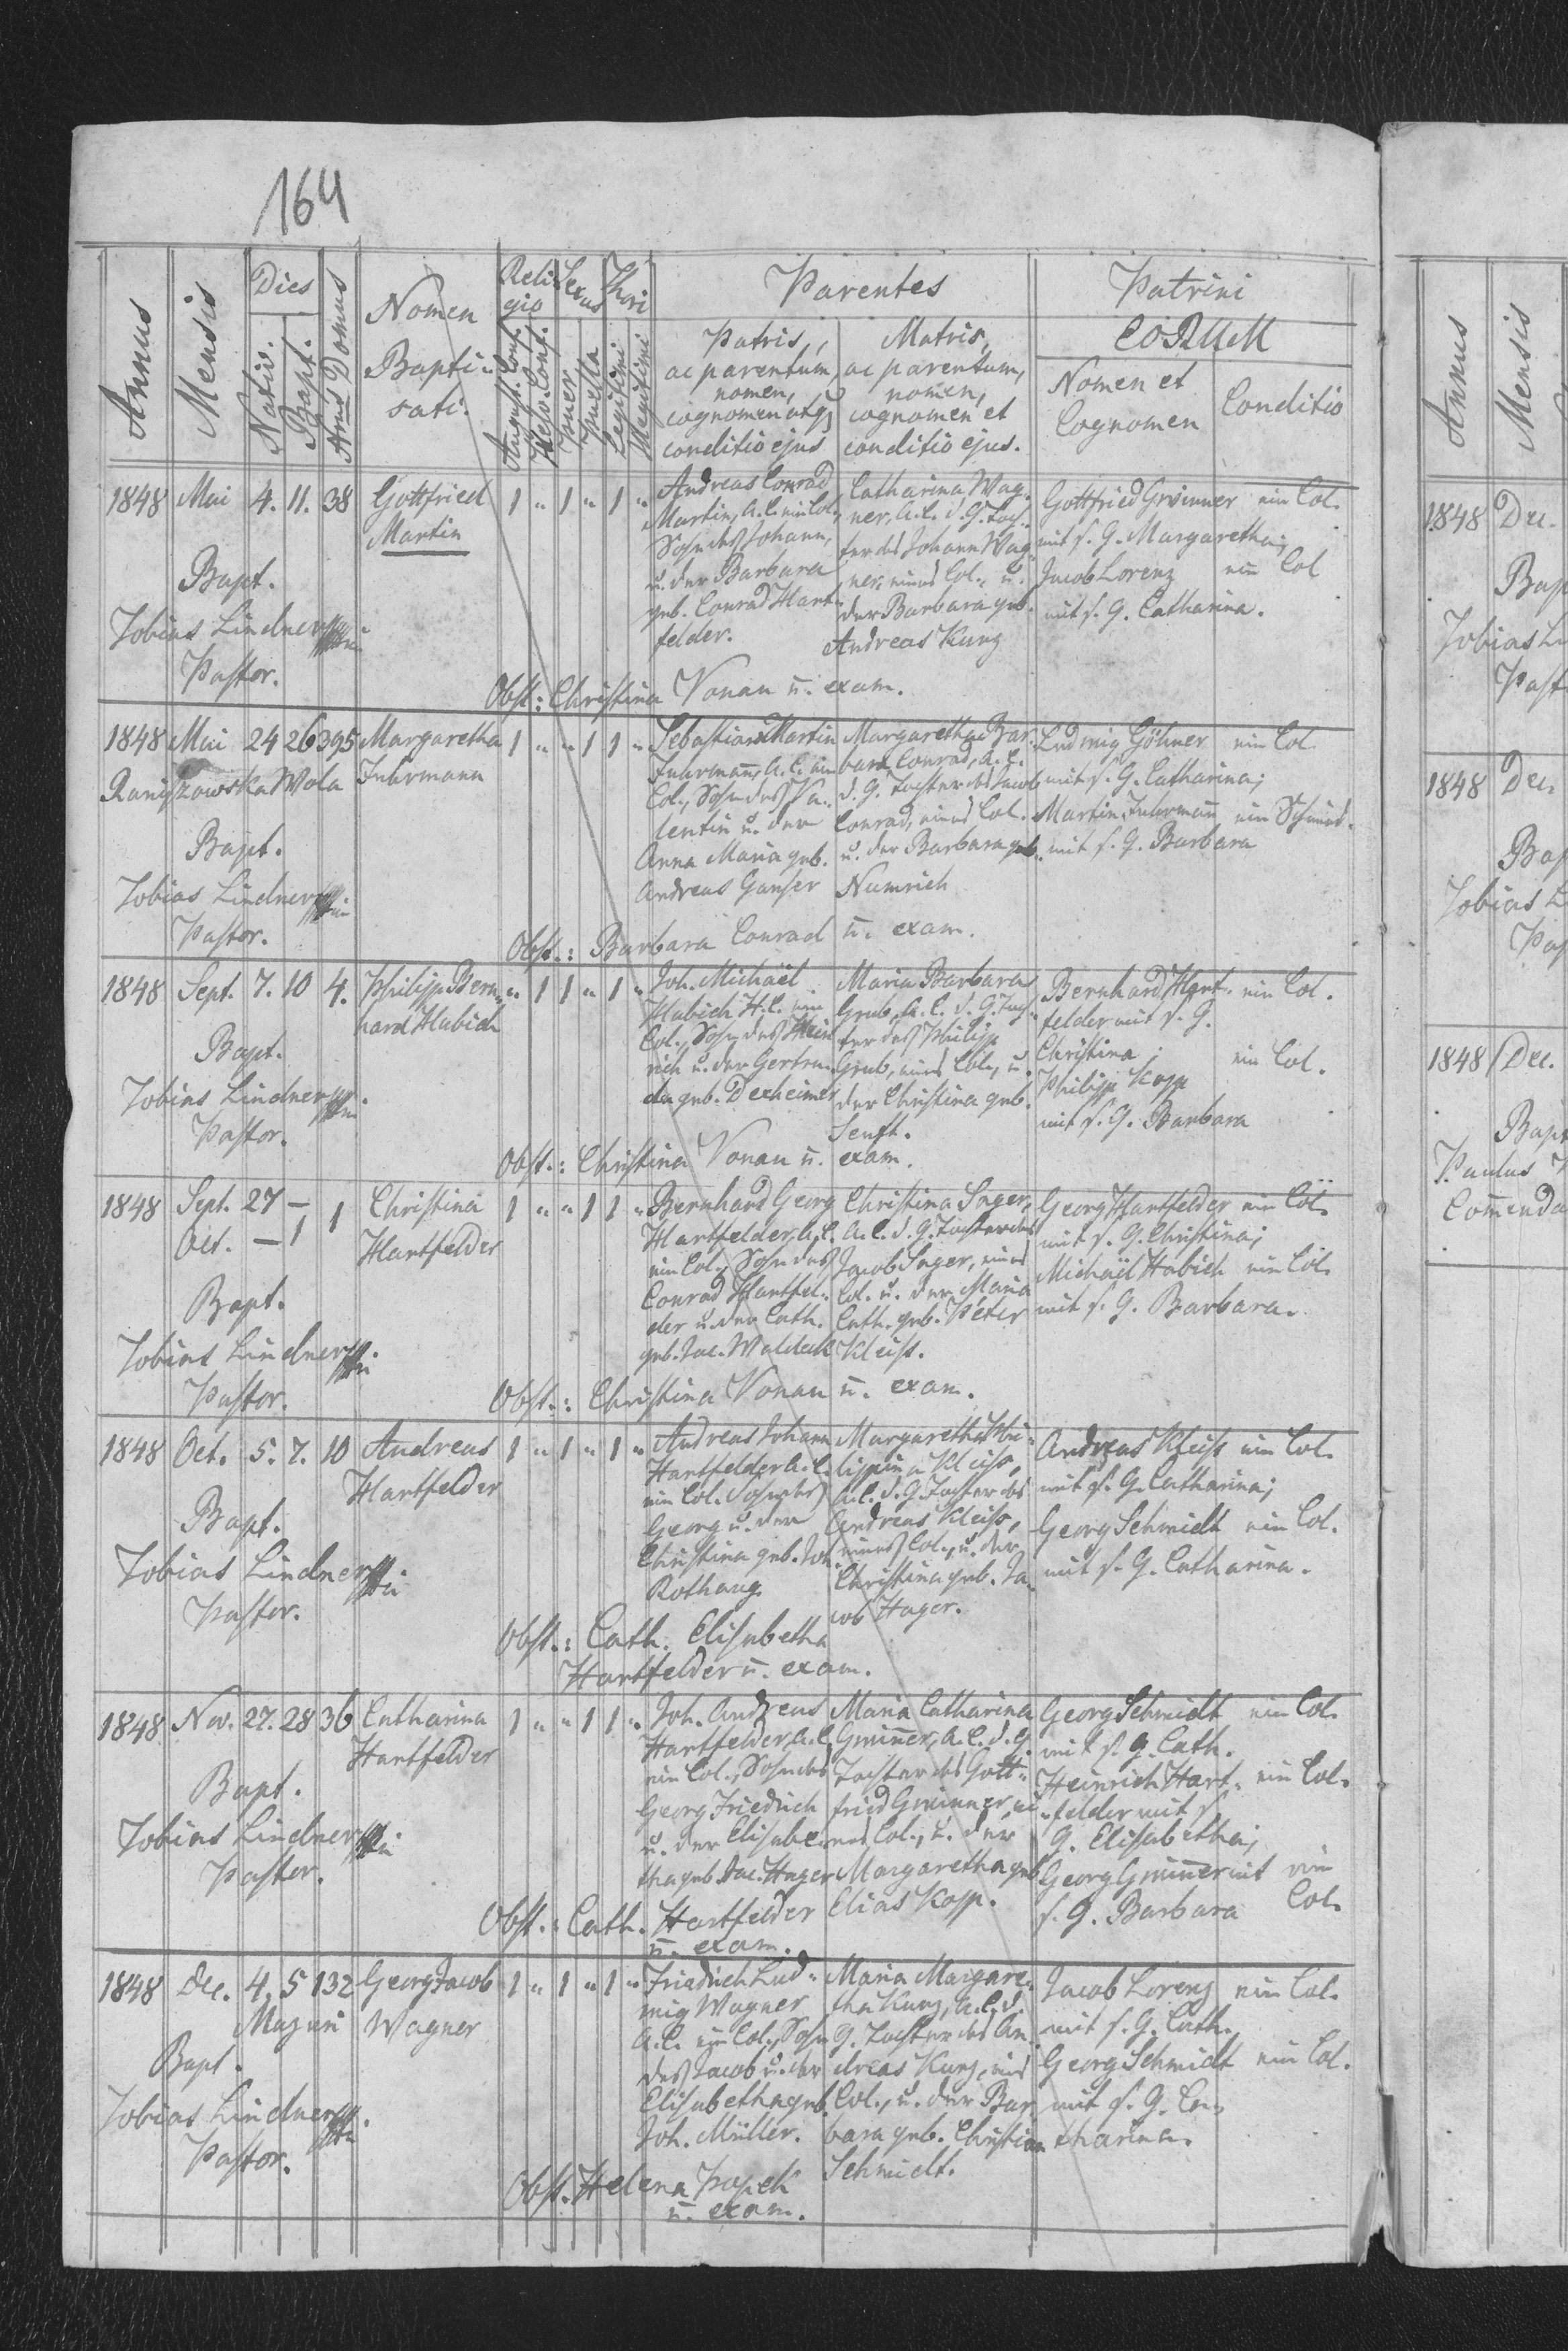 164
Annus Mensis Dies Nativ. Bapt. Arus Domus Nomen Bapti- sati. Reli gio August. Conf. Helv. Conf. Sexus Puer Puella Thori Legitimi Illegitimi Parentes Patrini
Patris, ac parentum, nomen, cognomen atq conditio ejus
Matris, ac parentum, nomen, cognomen et conditio ejus.
EORUM
Nomen et Cognomen Conditio
1848 Mai 4. 11. 38 Gottfried Martin 1 " 1 " 1 "
Bapt.
Tobias Lindner
Pastor.
Andreas Conrad
Martin, A. C. ein Col.,
Sohn des Johann,
u. der Barbara
geb. Conrad Hart-
felder.
Catharina Wag-
ner, A. C. d. G. Toch-
ter des Johann Wag-
ner, eines Col., u.
der Barbara geb.
Andreas Kunz
Gottfried Gminner ein Col.
mit s. G. Margaretha;
Jacob Lorenz ein Col
mit s. G. Catharina.
Obst.: Christina Vonau u. exam.
1848 Mai 24 26 395 Margaretha Fuhrmann 1 " " 1 1 "
Raniszowska Wola
Bapt.
Tobias Lindner
Pastor.
Sebastian Martin
Fuhrmann, A. C. ein
Col., Sohn des Va-
lentin u. der
Anna Maria geb.
Andreas Ganser
Margaretha Bar-
bara Conrad, A. C.
d. G. Tochter des Jacob
Conrad, eines Col.
u. der Barbara geb.
Numrich
Ludwig Göhner ein Col.
mit s. G. Catharina;
Martin Fuhrmann ein Schmied.
mit s. G. Barbara
Obst.: Barbara Conrad u. exam.
1848 Sept. 7. 10 4. Philipp Bern-
hard Habich " 1 1 " 1 "
Bapt.
Tobias Lindner
Pastor.
Joh. Michaël
Habich H. C. ein
Col., Sohn des Hein
rich u. der Gertru-
da geb. Dexheimer
Maria Barbara
Grub, A. C. d. G. Toch-
ter des Philipp
Grub, eines Col., u.
der Christina geb.
Senft.
Bernhard Hart- ein Col.
felder mit s. G.
Christina;
Philipp Kopp ein Col.
mit s. G. Barbara
Obst.: Christina Vonau u. exam.
1848 Sept. 27 – 1 Christina
Oct. – 1 Hartfelder 1 " " 1 1 "
Bapt.
Tobias Lindner
Pastor.
Bernhard Georg
Hartfelder, A. C.
ein Col., Sohn des
Conrad Hartfel-
der u. der Cath.
geb. Jac. Waldeck
Christina Sager,
A. C. d. G. Tochter des
Jacob Sager, eines
Col. u. der Maria
Cath. geb. Peter
Kleiss.
Georg Hartfelder ein Col.
mit s. G. Christina;
Michaël Habich ein Col.
mit s. G. Barbara.
Obst.: Christina Vonau u. exam.
1848 Oct. 5. 7. 10 Andreas
Hartfelder 1 " 1 " 1 "
Bapt.
Tobias Lindner
Pastor.
Andreas Johann
Hartfelder A. C.
ein Col. Sohn des
Georg u. der
Christina geb. Joh.
Rothaug
Margaretha Phi-
lippina Kleiss,
A. C. d. G. Tochter des
Andreas Kleiss,
eines Col., u. der
Christina geb. Ja-
cob Hager.
Andreas Kleiss ein Col.
mit s. G. Catharina;
Georg Schmidt ein Col.
mit s. G. Catharina.
Obst.: Cath. Elisabetha
Hartfelder u. exam.
1848 Nov. 27. 28 36 Catharina
Hartfelder 1 " " 1 1 "
Bapt.
Tobias Lindner
Pastor.
Joh. Andreas
Hartfelder, A. C.
ein Col., Sohn des
Georg Friedrich
u. der Elisabe-
tha geb. Jac. Hager
Maria Catharina
Gminner, A. C. d. G.
Tochter des Gott-
fried Gminner, ei-
nes Col., u. der
Margaretha geb
Elias Kopp.
Georg Schmidt ein Col.
mit s. G. Cath.
Heinrich Hart- ein Col.
felder mit s.
G. Elisabetha;
Georg Gminner mit ein
s. G. Barbara Col.
Obst.: Cath. Hartfelder
u. exam.
1848 Dec. 4. 5 132 Georg Jacob
Mazuri Wagner 1 " 1 " 1 "
Bapt.
Tobias Lindner
Pastor.
Friedrich Lud-
wig Wagner
A. C. ein Col., Sohn
des Jacob u. der
Elisabetha geb.
Joh. Müller.
Maria Margare-
tha Kunz, A. C. d.
G. Tochter des An-
dreas Kunz, eines
Col., u. der Bar
bara geb. Christian
Schmidt.
Jacob Lorenz ein Col.
mit s. G. Cath.
Georg Schmidt ein Col.
mit s. G. Ca-
tharina.
Obst. Helena
u. exam.
Annus Mensis
1848 Dec.
Bap
Tobias Li
Past
1848 Dec.
Bap
Tobias L
Pas
1848 Dec.
Bapt
Paulus
Com̄enda